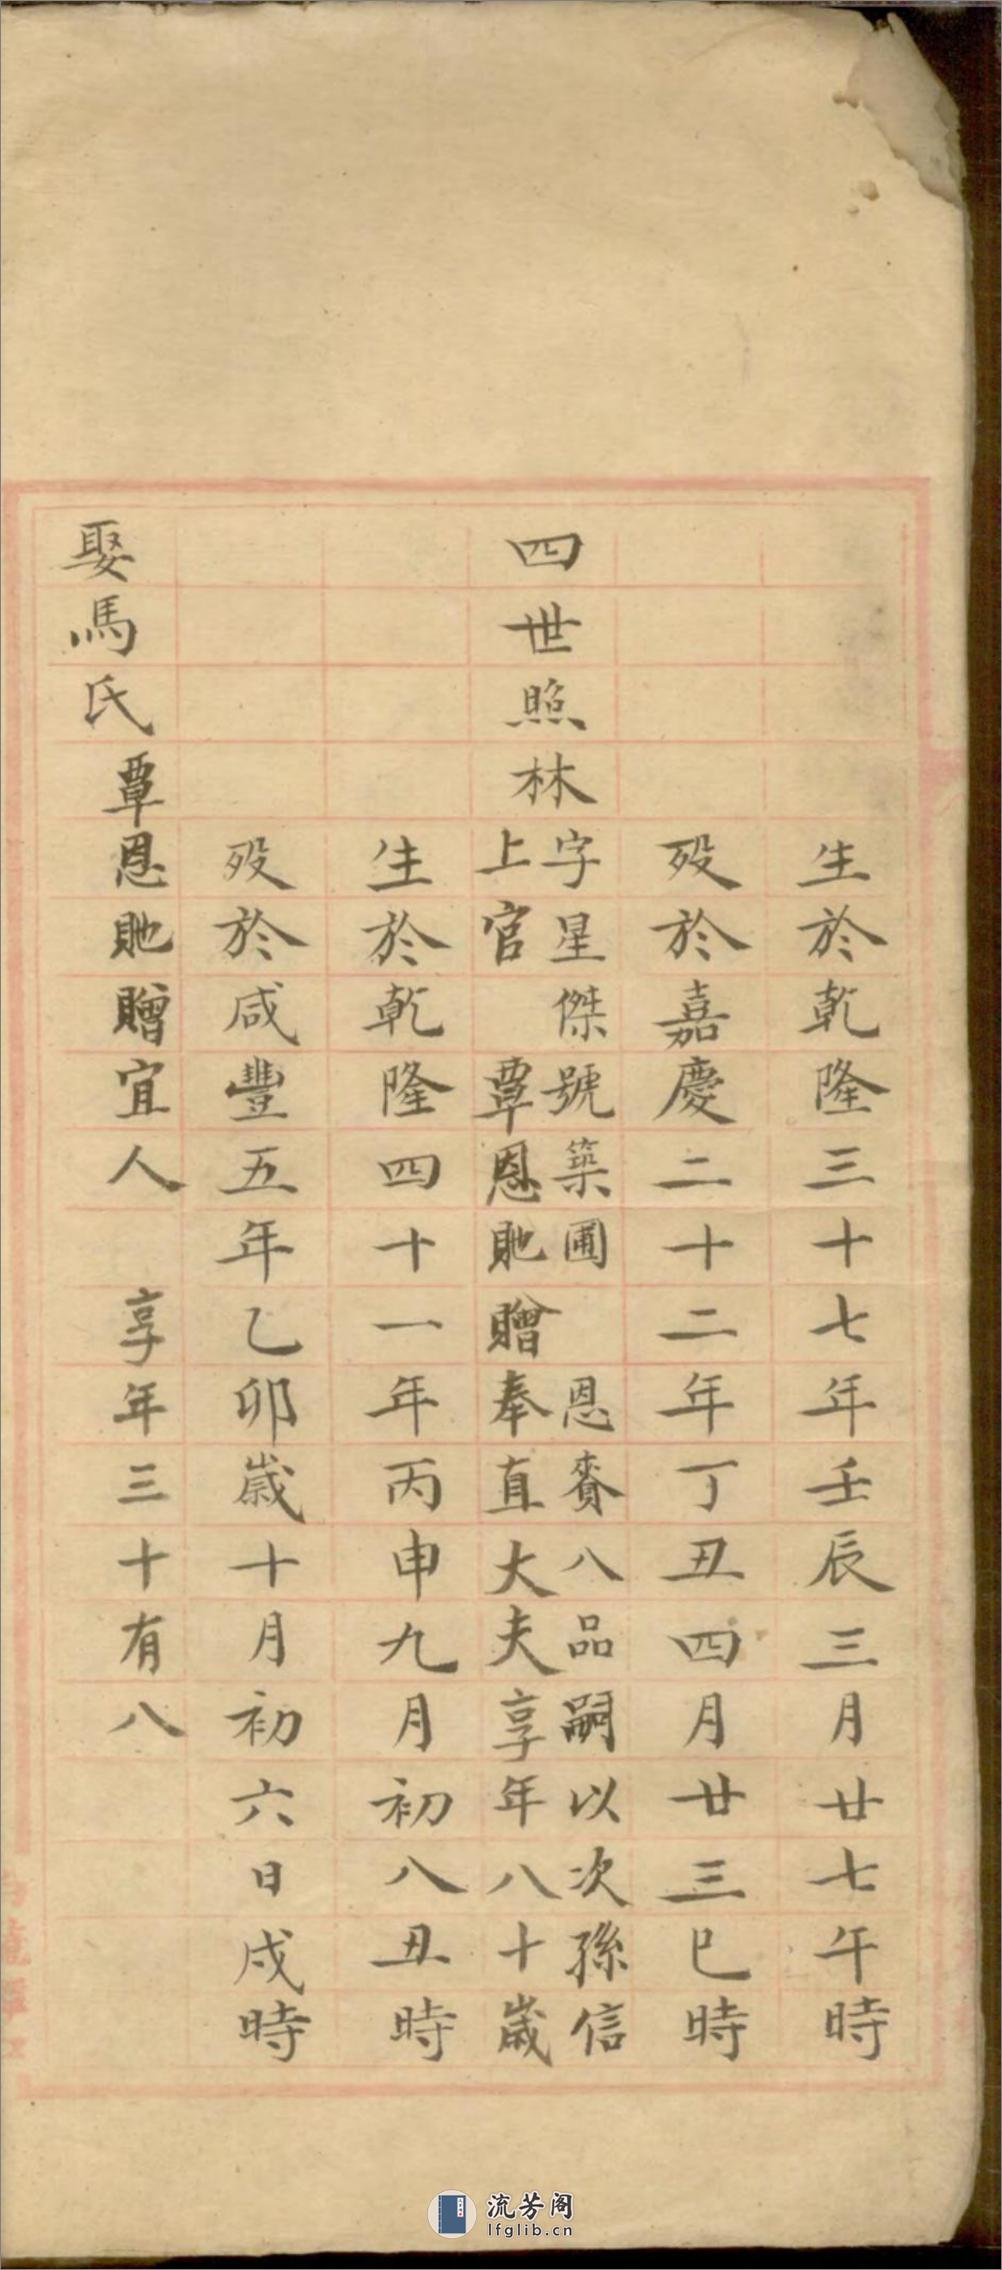 生於乾隆三十七年壬辰三月廿七午時
歿於嘉慶二十二年丁丑四月廿三巳時
四世照林字星傑號築圃 恩賚八品嗣以次孫信
上官 覃恩貤贈奉直大夫享年八十歲
生於乾隆四十一年丙申九月初八丑時
歿於咸豐五年乙卯歲十月初六日戌時
娶馬氏覃恩貤贈宜人 享年三十有八
流芳阁
lfglib.cn